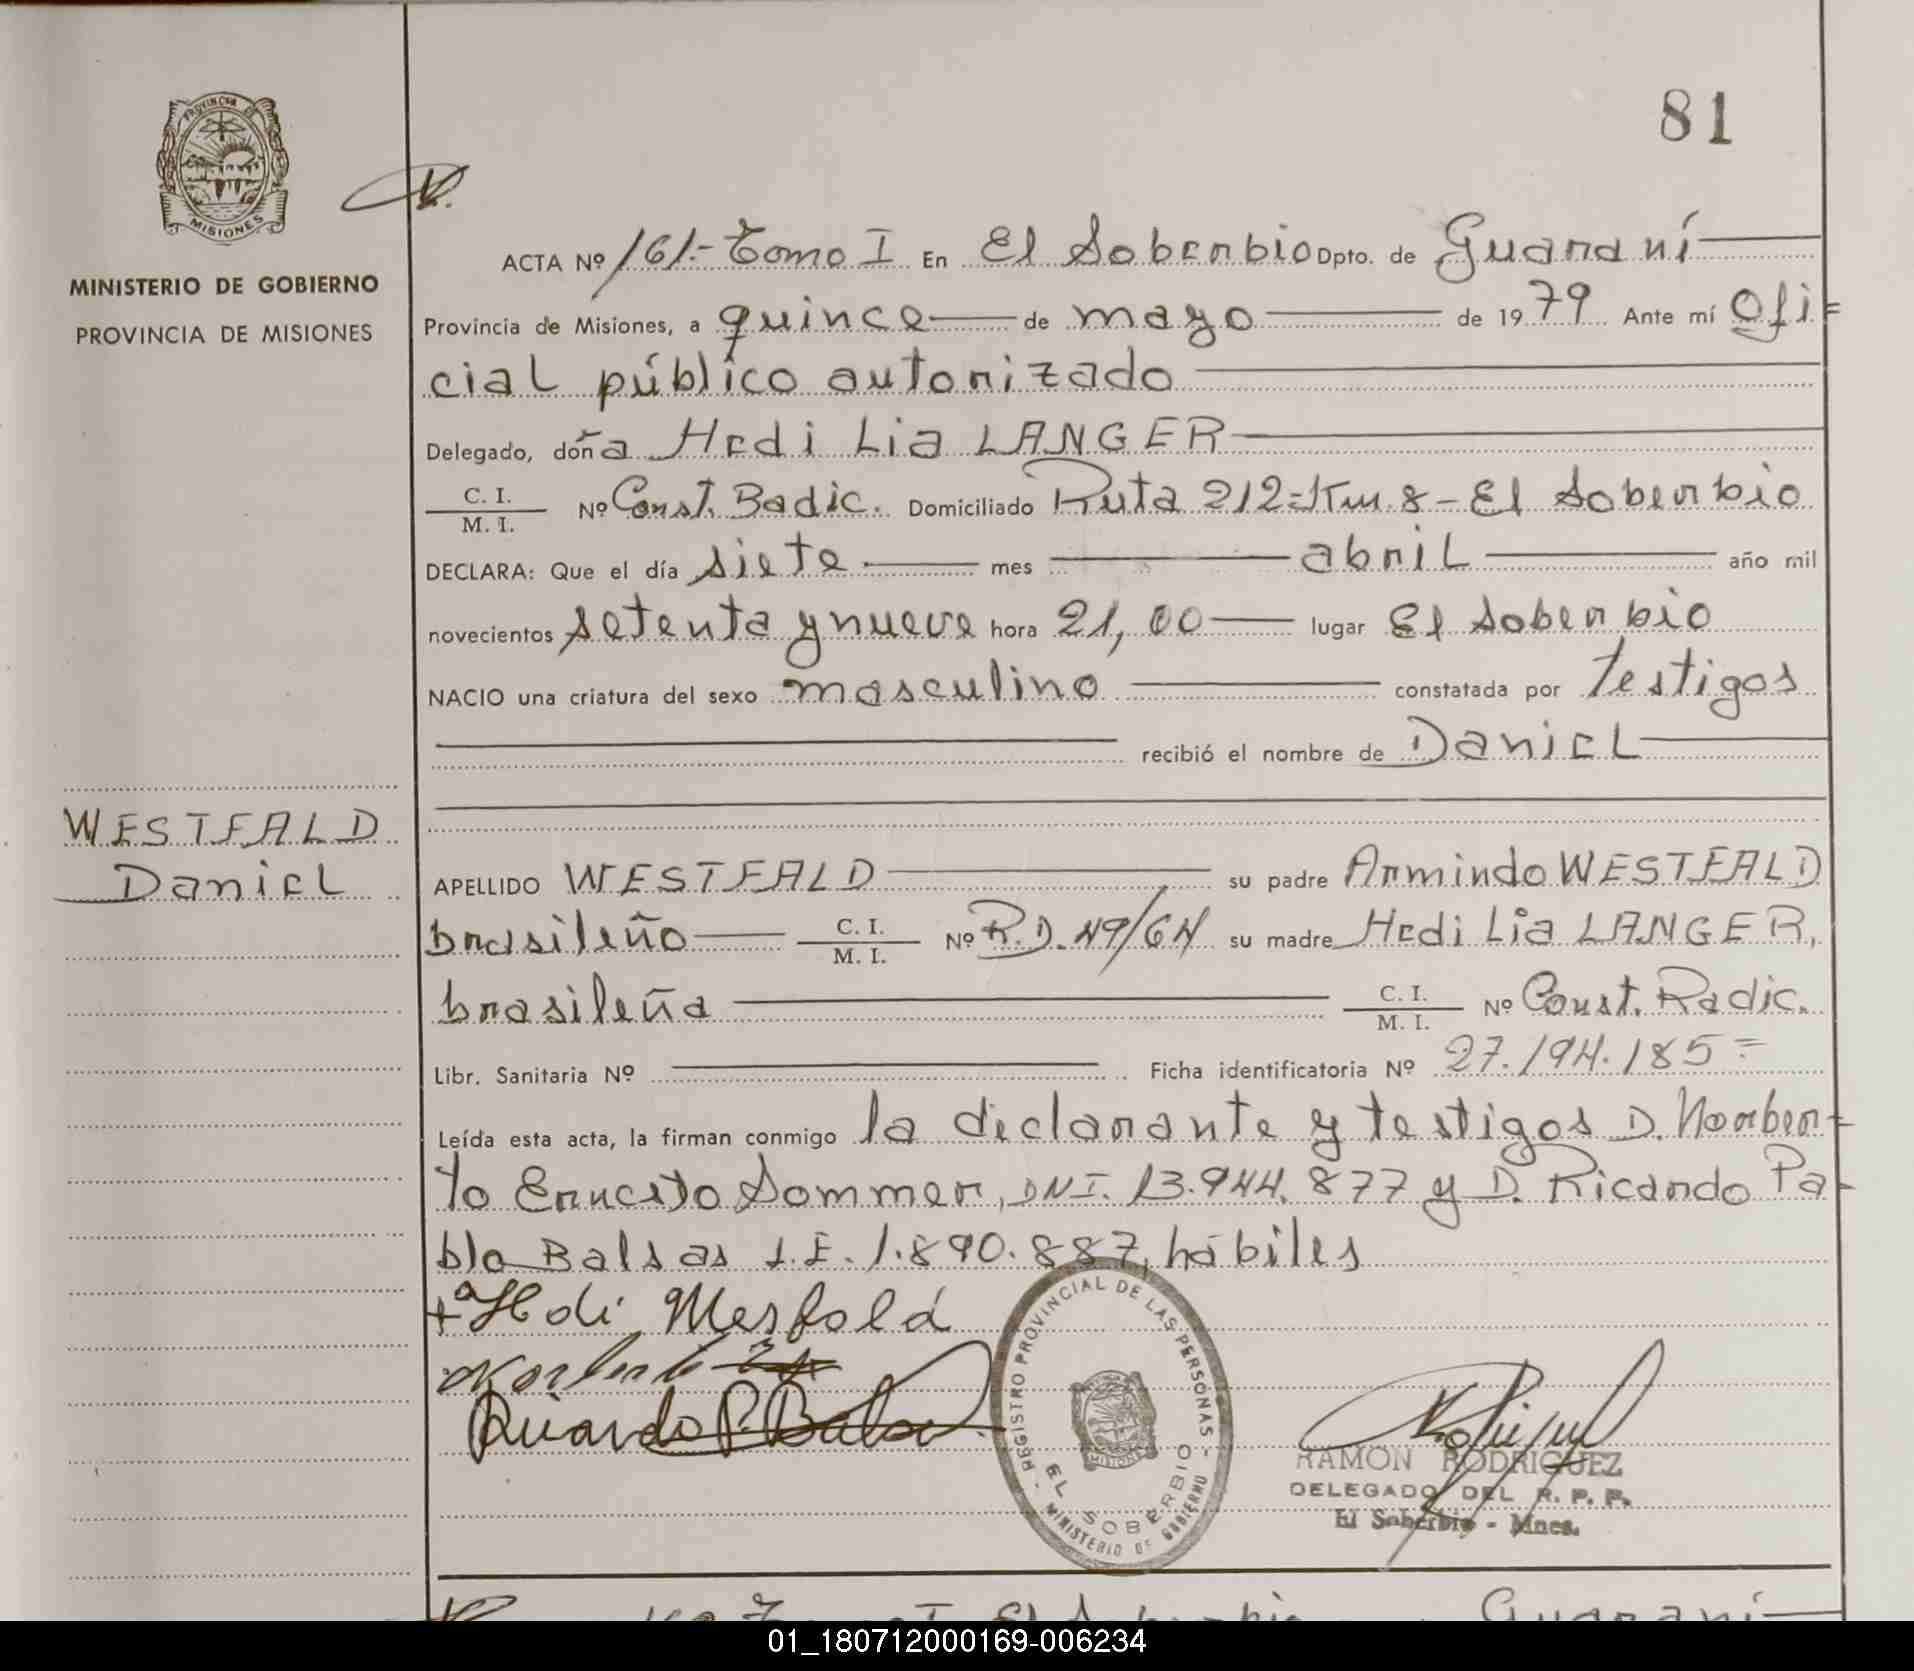 81
PROVINCIA DE
MISIONES
MINISTERIO DE GOBIERNO
PROVINCIA DE MISIONES
ACTA Nº 161.- Tomo I En El Soberbio Dpto. de Guaraní
Provincia de Misiones, a quince de mayo de 1979 Ante mí Ofi=
cial público autorizado
Delegado, doña Hedi Lia LANGER
C. I.
M. I.
Nº Const. Radic. Domiciliado Ruta 212=Km 8- El Soberbio
DECLARA: Que el día siete mes abril año mil
novecientos setenta y nueve hora 21,00 lugar El Soberbio
NACIO una criatura del sexo masculino constatada por Testigos
recibió el nombre de Daniel
WESTFALD
Daniel
APELLIDO WESTFALD su padre Armindo WESTFALD
brasileño C. I. M. I. Nº R.D. 49/64 su madre Hedi Lia LANGER,
brasileña C. I. M. I. Nº Const. Radic.
Libr. Sanitaria Nº Ficha identificatoria Nº 27.194.185=
Leída esta acta, la firman conmigo la declarante y testigos D. Norber-
to Ernesto Sommer, DNI. 13.944.877 y D. Ricardo Pa-
blo Balsas L.E. 1.890.887, hábiles
+ª Hedi Mesfold
Norberto
Ricardo P. Balsa
REGISTRO PROVINCIAL DE LAS PERSONAS -
EL SOBERBIO
- MINISTERIO DE GOBIERNO
MISIONES
RAMON RODRIGUEZ
DELEGADO DEL R. P. P.
El Soberbio - Mnes.
I El Soberbio Guaraní
01_180712000169-006234